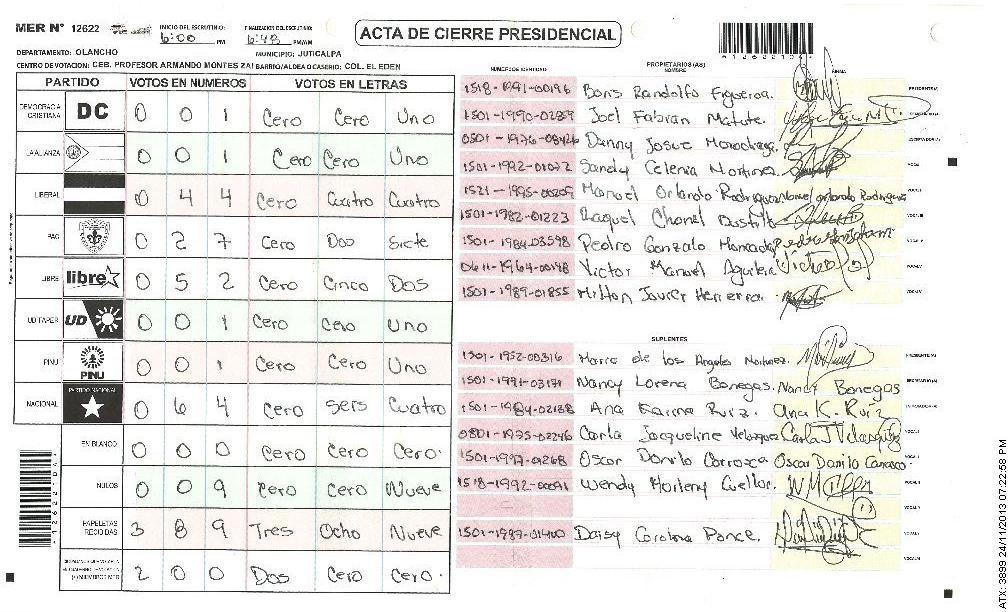 MER N° 12622 INICIO DEL ESCRUTINIO: 6:00 PM FINALIZACION DEL ESCRUTINIO: 6:48 PM/AM
ACTA DE CIERRE PRESIDENCIAL
DEPARTAMENTO: OLANCHO MUNICIPIO: JUTICALPA
CENTRO DE VOTACION: CEB. PROFESOR ARMANDO MONTES ZA! BARRIO/ALDEA O CASERIO: COL. EL EDEN
PARTIDO VOTOS EN NUMEROS VOTOS EN LETRAS
DEMOCRACIA CRISTIANA DC 0 0 1 Cero Cero Uno
LA ALIANZA 0 0 1 Cero Cero Uno
LIBERAL 0 4 4 Cero Cuatro Cuatro
PAC 0 2 7 Cero Dos Siete
LIBRE libre 0 5 2 Cero Cinco Dos
UD/FAPER UD 0 0 1 Cero Cero Uno
PINU PINU 0 0 1 Cero Cero Uno
NACIONAL PARTIDO NACIONAL 0 6 4 Cero Seis Cuatro
EN BLANCO 0 0 0 Cero Cero Cero.
NULOS 0 0 9 Cero Cero Nueve
PAPELETAS RECIBIDAS 3 8 9 Tres Ocho Nueve
(+) MIEMBROS MER 2 0 0 Dos Cero Cero.
NUMERO DE IDENTIDAD PROPIETARIOS (AS) NOMBRE FIRMA
1518-1991-00196 Boris Randolfo Figueroa. PRESIDENTE(A)
1501-1990-02889 Joel Fabian Matute.
0501-1976-08426 Danny Josue
1501-1992-01072 Sandy Celenia Martinez
1521-1995-00209 Manuel Orlando Rodriguez Manuel orlando Rodriguez
1501-1982-01223 Raquel Chanel Bustillo
1501-1984-03598 Pedro Gonzalo Moncada
0611-1964-00198 Victor Manuel Aguilera
1501-1989-01855 Milton Javier Herrera.
SUPLENTES
1501-1952-00316 Maria de los Angeles Martinez. PRESIDENTE(A)
1501-1991-03171 Nancy Lorena Banegas. Nancy Banegas
1501-1984-02188 Ana Karina Ruiz. Ana K. Ruiz
0801-1975-02246 Carla Jacqueline Velasquez Carla J Velasquez
1501-1997-01268 Oscar Danilo Carrasco Oscar Danilo Carrasco
1518-1992-00091 Wendy Marleny Cuellar.
1501-1987-01400 Daisy Carolina Ponce.
ATX: 3899 24/11/2013 07:22:58 PM